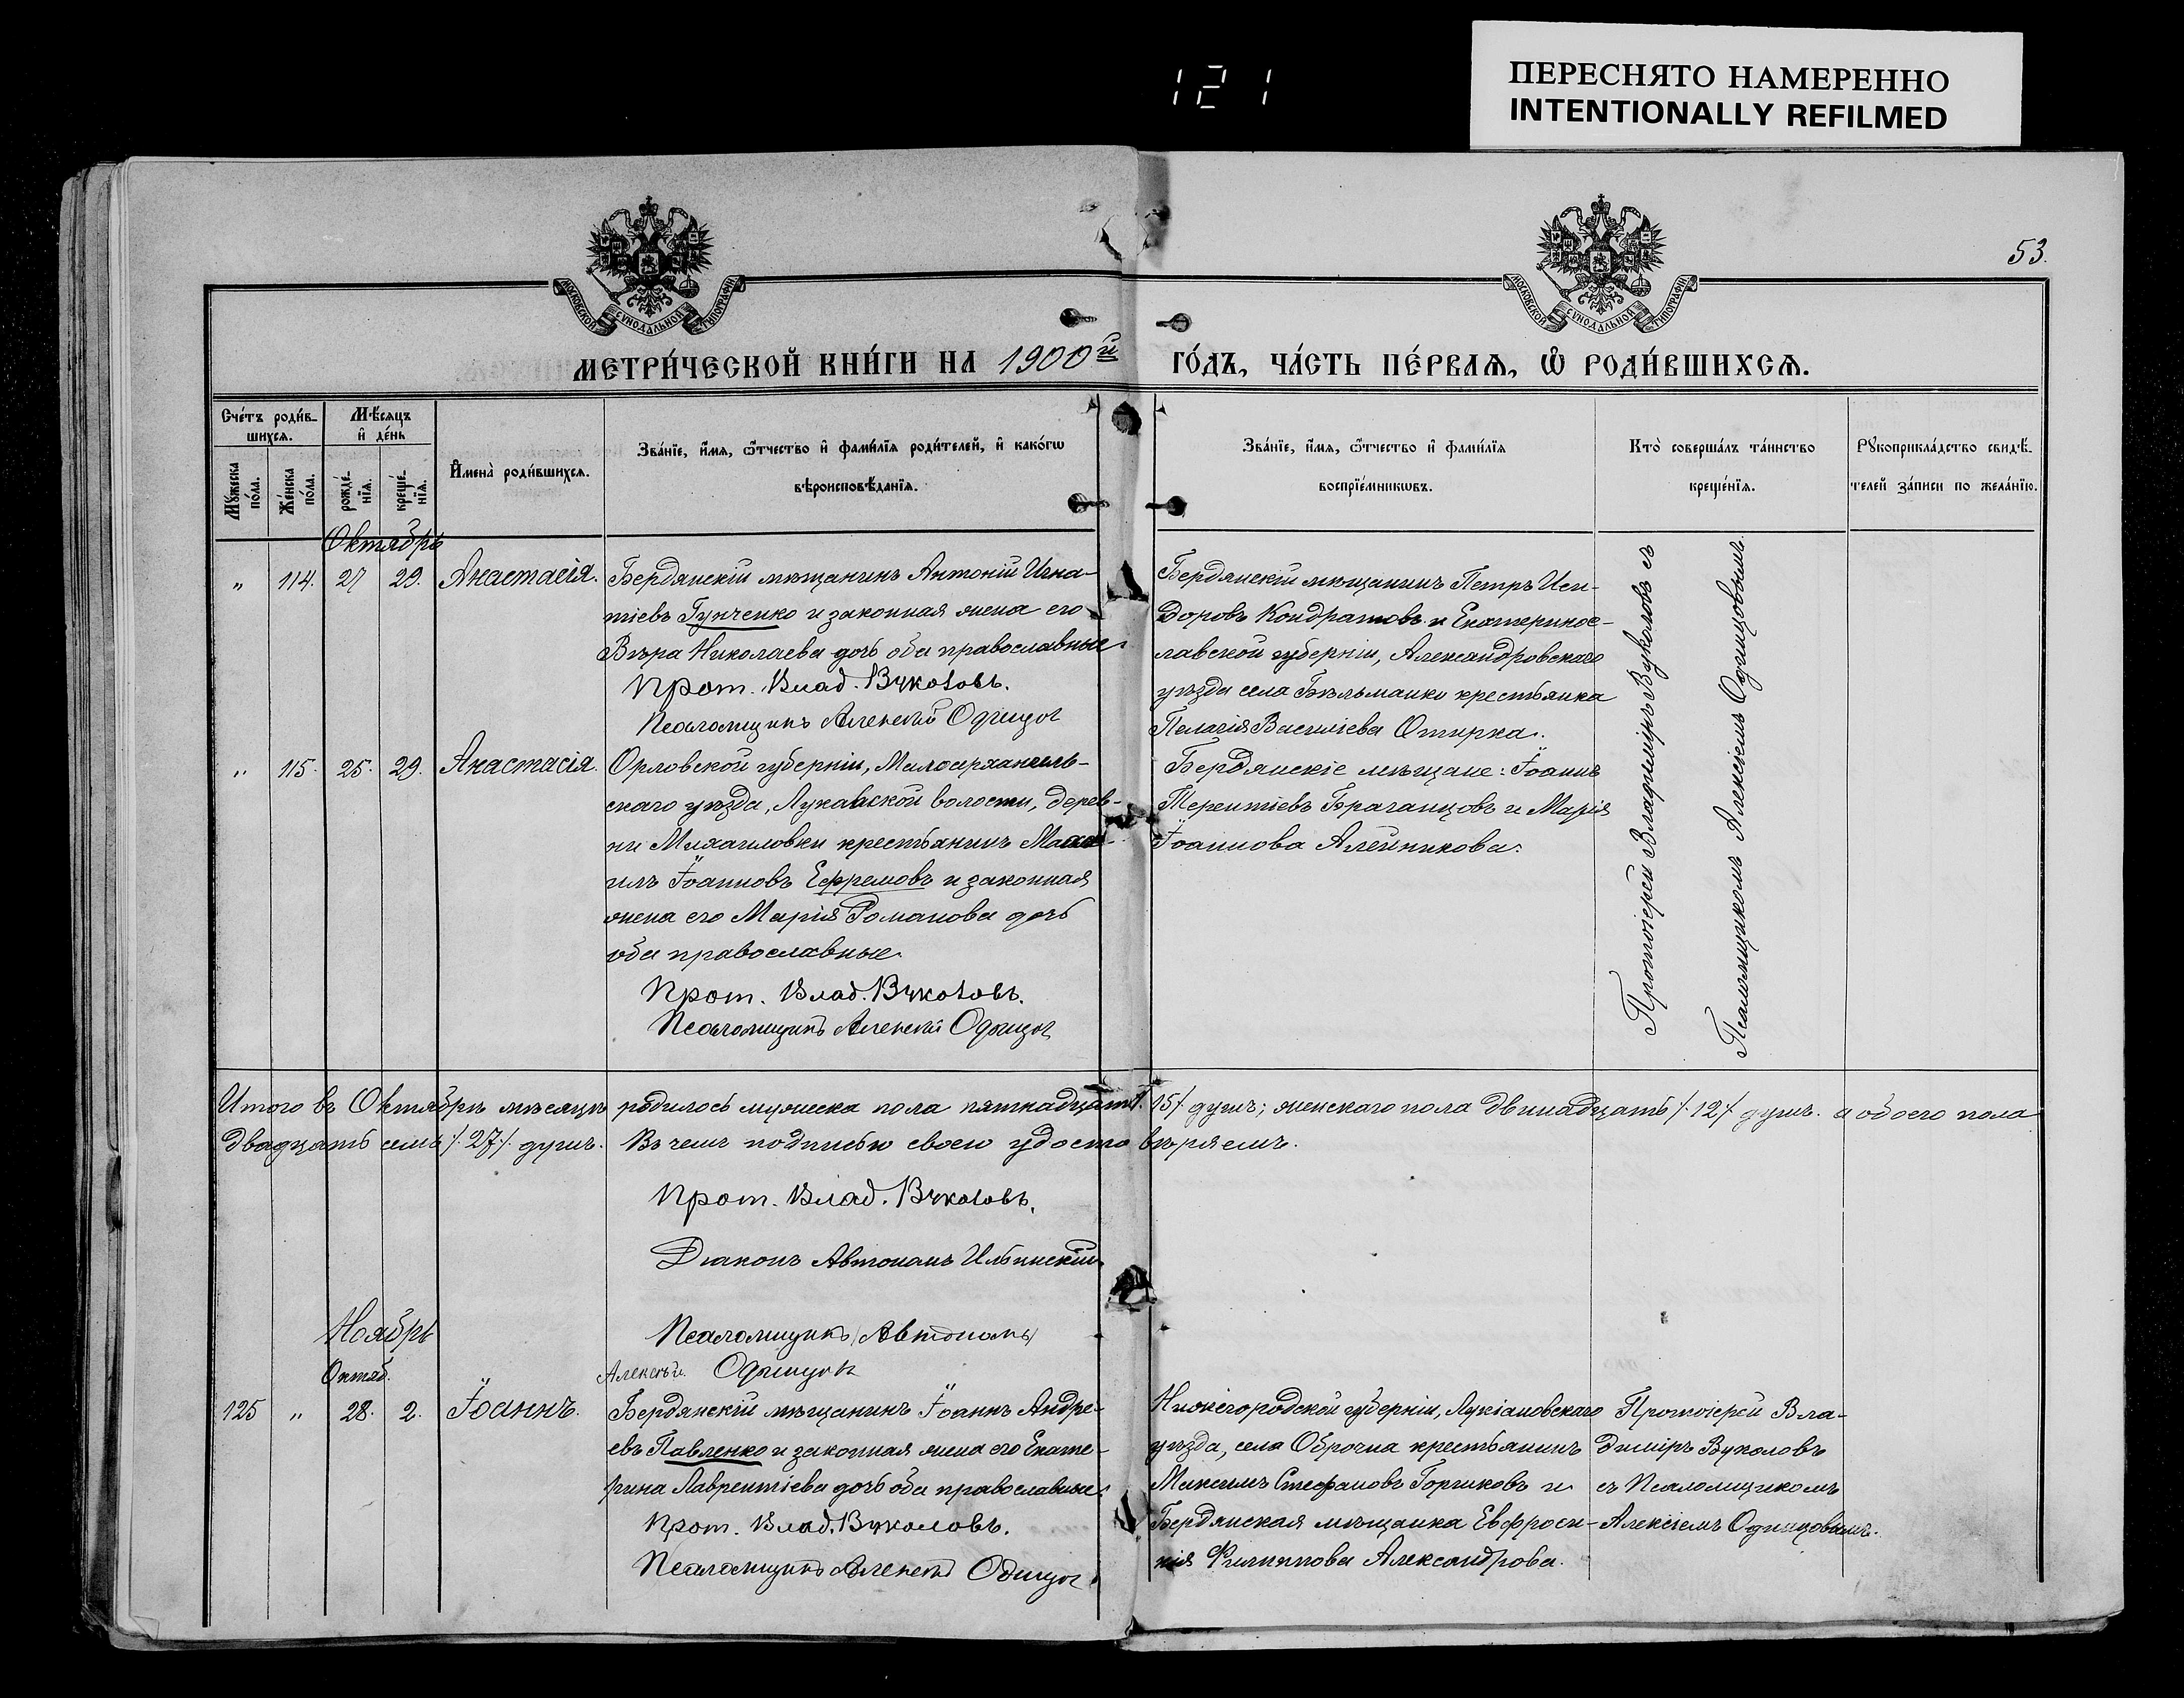 121
ПЕРЕСНЯТО НАМЕРЕННО
INTENTIONALLY REFILMED
53.
МОСКОВСКОЙ СѴНОДАЛЬНОЙ ТИПОГРАФІИ
МОСКОВСКОЙ СѴНОДАЛЬНОЙ ТИПОГРАФІИ
МЕТРИ́ЧЕСКОЙ КНИ́ГИ НА 1900й ГО́ДЪ, ЧА́СТЬ ПЕ́РВАѦ, Ѡ҆ РОДИ́ВШИХСѦ.
Сче́тъ роди́в-
шихсѧ.
Мꙋ́жеска по́ла.
Же́нска по́ла.
Мѣ́сѧцъ
и҆ де́нь
рожде́-
нїѧ.
креще́-
нїѧ.
И҆мена̀ роди́вшихсѧ.
Зва́нїе, и҆́мѧ, ѻ҆́тчество и҆ фами́лїѧ роди́телей, и҆ како́гѡ
вѣроисповѣ́данїѧ.
Зва́нїе, и҆́мѧ, ѻ҆́тчество и҆ фами́лїѧ
воспрїе́мникѡвъ.
Кто̀ соверша́лъ та́инство
креще́нїѧ.
Рꙋкоприкла́дство свидѣ́-
телей за́писи по жела́нїю.
Октябрь
" 114. 27 29. Анастасія.
Бердянскій мѣщанинъ Антоній Игна-
тіевъ Гунченко и законная жена его
Вѣра Николаева дочь оба православные.
Прот. Влад. Вуколовъ.
Псаломщикъ Алексѣй Одинцов
Бердянскій мѣщанинъ Петръ Иси-
доровъ Кондратовъ и Екатеринос-
лавской губерніи, Александровскаго
уѣзда села Бѣльманки крестьянка
Пелагія Василіева Отирка.
Протоіерей Владиміръ Вуколовъ съ
Псаломщикомъ Алексіемъ Одинцовымъ.
" 115. 25. 29. Анастасія.
Орловской губерніи, Малоархангель-
скаго уѣзда, Лукавской волости, дерев-
ни Михаиловки крестьянинъ
Іоанновъ Ефремовъ и законная
жена его Марія Романова дочь
оба православные.
Прот. Влад. Вуколовъ.
Псаломщикъ Алексѣй Одинцов
Бердянскіе мѣщане: Іоаннъ
Терентіевъ Браганцовъ и Марія
Іоаннова Алейникова.
Итого въ Октябрѣ мѣсяцѣ родилось мужеска пола пятнадцать /.15/. душъ; женскаго пола двѣнадцать /.12/. душъ. а обоего пола
двадцать семь /.27/. душъ. Въ чемъ подписью своею удостовѣряемъ.
Прот. Влад. Вуколовъ.
Діаконъ Автономъ Ильинскій
Псаломщикъ /Автономъ/
Алексѣй Одинцовъ
Ноябрь
Октяб.
125 " 28. 2. Іоаннъ.
Бердянскій мѣщанинъ Іоаннъ Андре-
евъ Павленко и законная жена его Екате-
рина Лаврентіева дочь оба православные.
Прот. Влад. Вуколовъ.
Псаломщикъ Алексѣй Одинцов
Нижегородской губерніи, Лукіановскаго
уѣзда, села Оброчна крестьянинъ
Максимъ Стефановъ Горшковъ и
Бердянская мѣщанка Евфроси-
нія Филиппова Александрова.
Протоіерей Вла-
диміръ Вуколовъ
съ Псаломщикомъ
Алексіемъ Одинцовымъ.